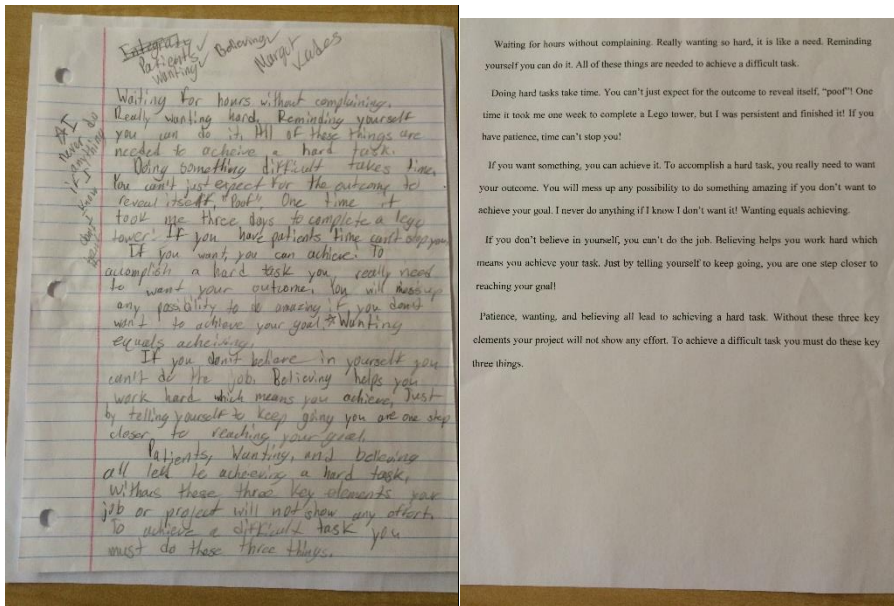 Integraty
Patients✓
Wanting✓
Believing✓
Margot
Waiting for hours without complaining.
Really wanting hard. Reminding yourself
you can do it. All of these things are
needed to acheive a hard task.
Doing something difficult takes time.
You can't just expect for the outcome to
reveal itself, "Poof". One time it
took me three days to complete a lego
tower! If you have patients time can't stop you.
If you want, you can achieve. To
accomplish a hard task you really need
to want your outcome. You will mess up
any possibility to do amazing if you don't
want to achieve your goal.* Wanting
equals acheiving.
If you don't believe in yourself you
can't do the job. Believing helps you
work hard which means you achieve. Just
by telling yourself to keep going you are one step
closer to reaching your goal.
Patients, Wanting, and
all to acheeving a hard task.
these three key elements your
job or project will not show any effort.
To achieve a difficult task you
must do these three things.
*I
never do
anything
if I
know I
don't
Waiting for hours without complaining. Really wanting so hard, it is like a need. Reminding
yourself you can do it. All of these things are needed to achieve a difficult task.
Doing hard tasks take time. You can't just expect for the outcome to reveal itself, "poof"! One
time it took me one week to complete a Lego tower, but I was persistent and finished it! If you
have patience, time can't stop you!
If you want something, you can achieve it. To accomplish a hard task, you really need to want
your outcome. You will mess up any possibility to do something amazing if you don't want to
achieve your goal. I never do anything if I know I don't want it! Wanting equals achieving.
If you don't believe in yourself, you can't do the job. Believing helps you work hard which
means you achieve your task. Just by telling yourself to keep going, you are one step closer to
reaching your goal!
Patience, wanting, and believing all lead to achieving a hard task. Without these three key
elements your project will not show any effort. To achieve a difficult task you must do these key
three things.